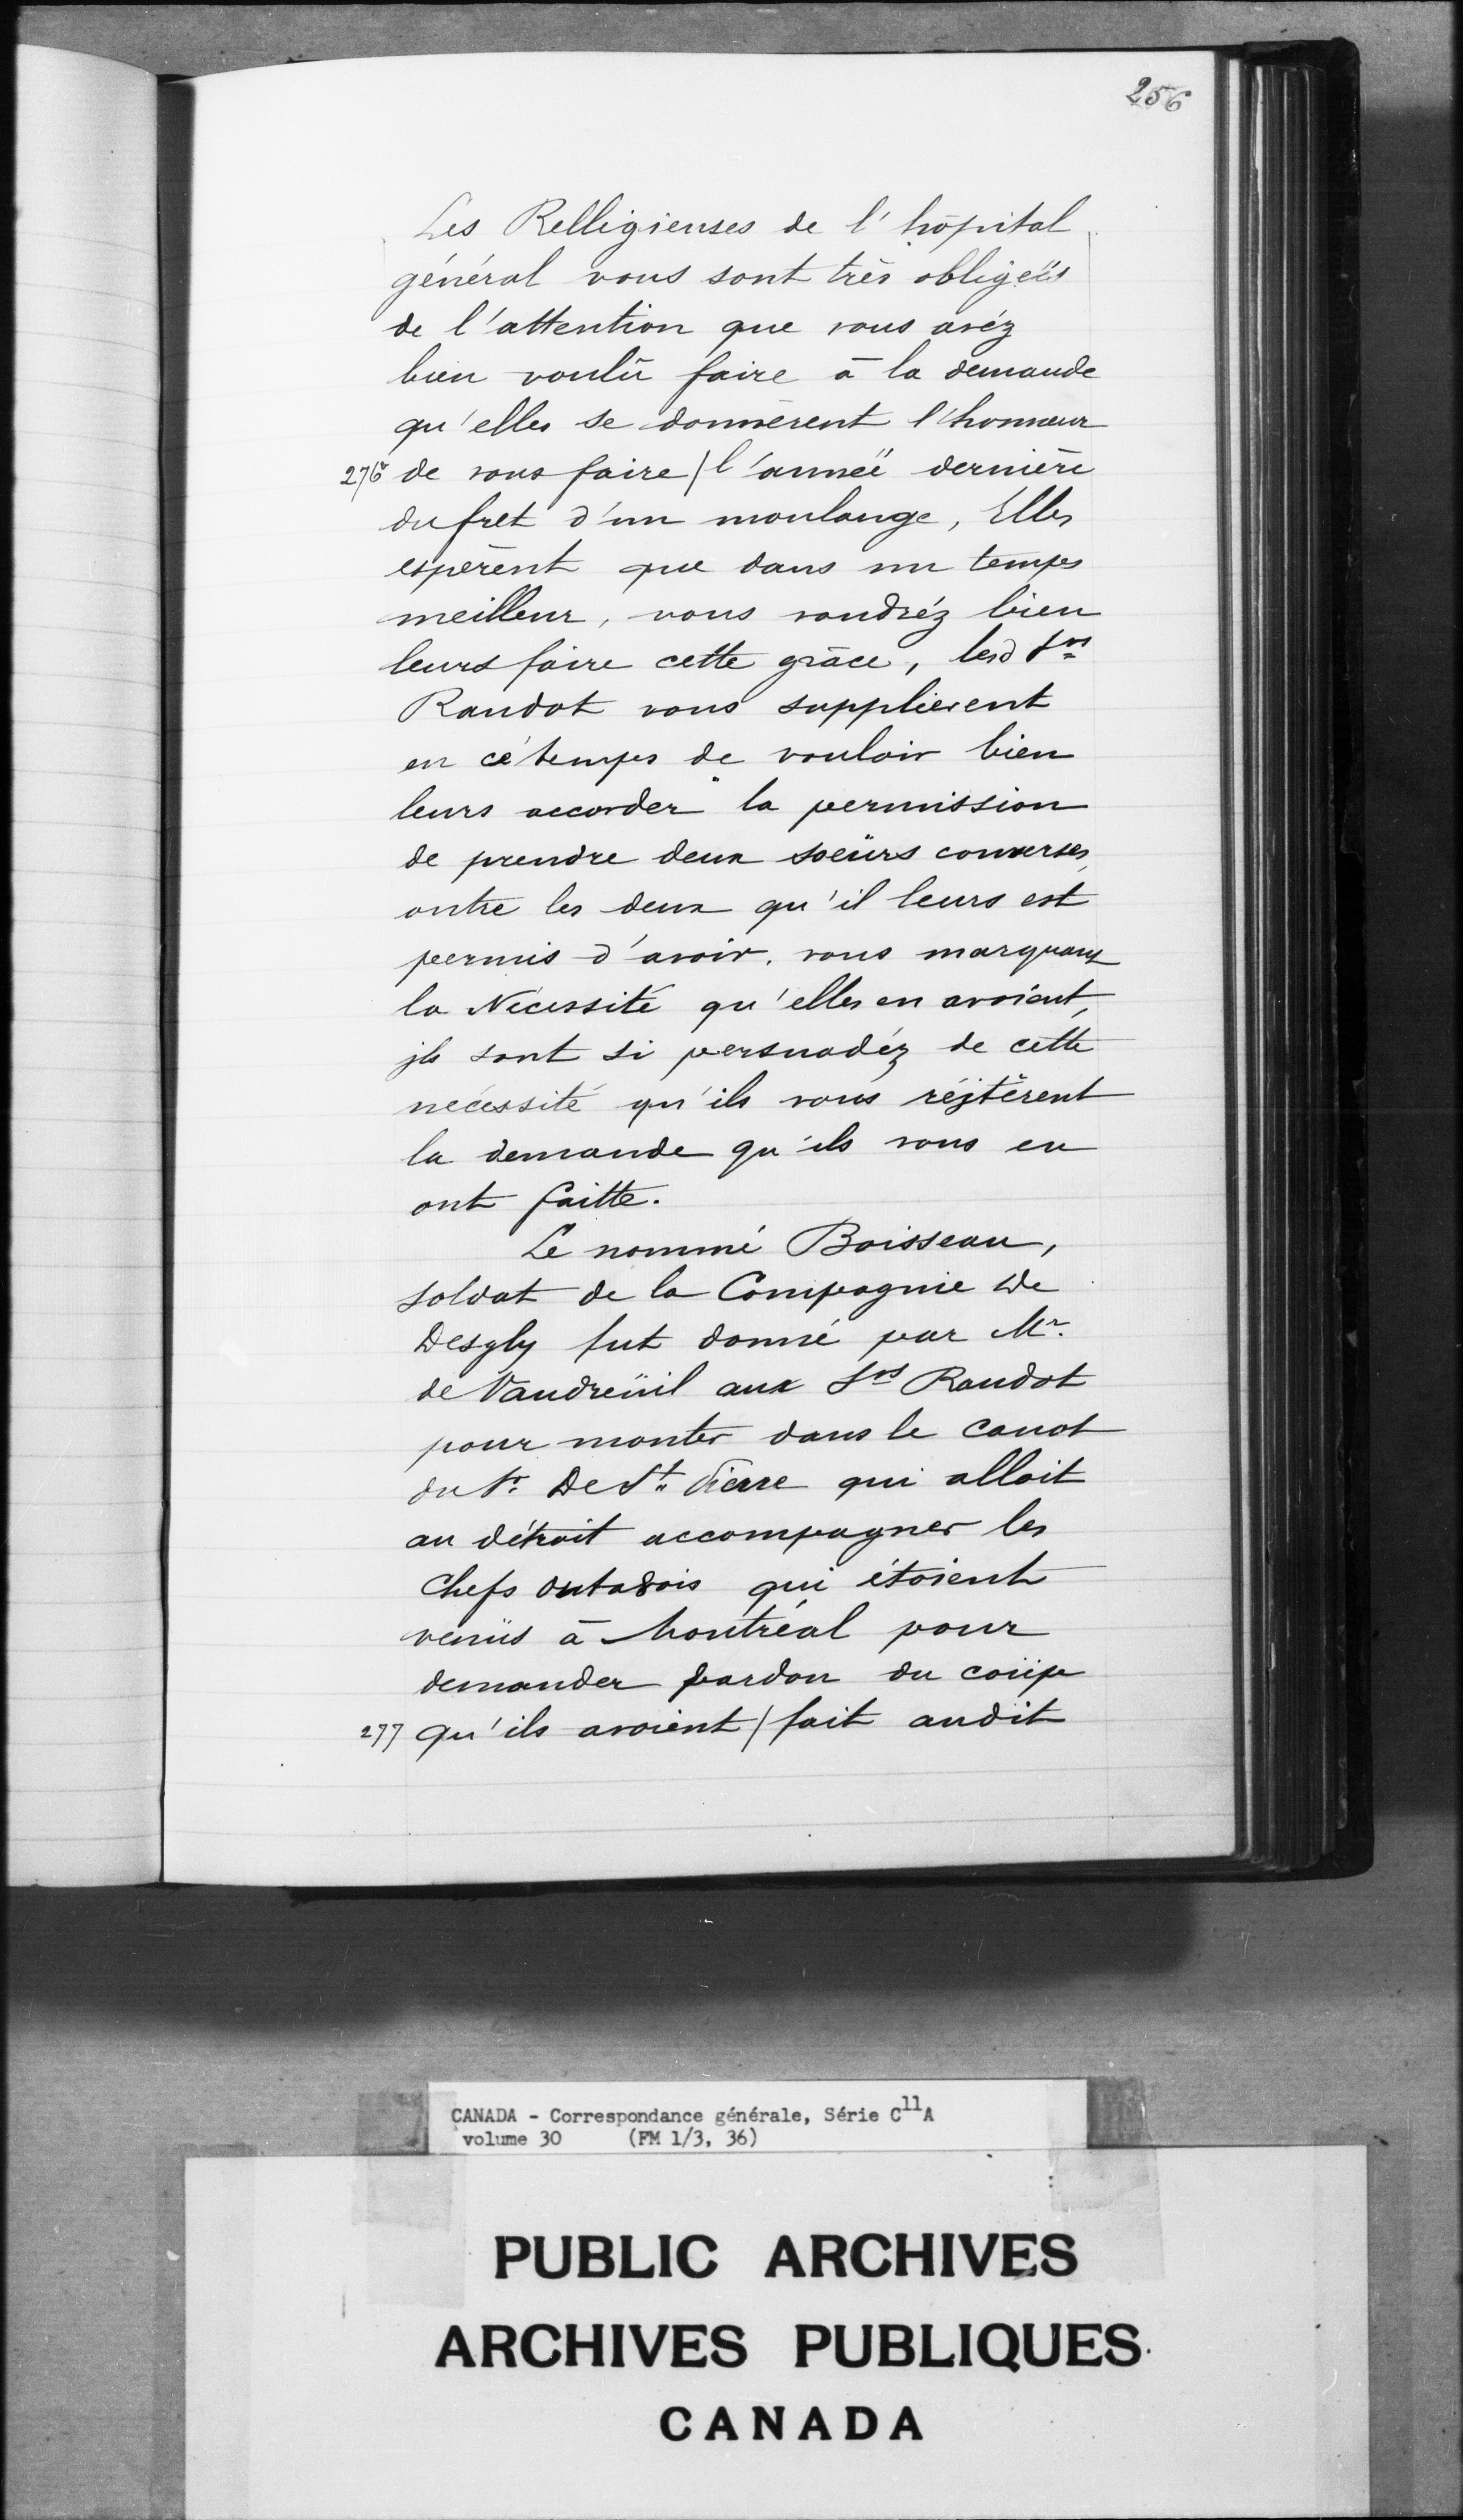 256
Les Relligieuses de l'hôpital
général vous sont très obligeës
de l'attention que vous avéz
bien voulû faire à la demande
qu'elles se donnèrent l'honneur
276v de vous faire / l'anneë dernière
du fret d'un moulange, Elles
espèrent que dans un temps
meilleur, vous voudréz bien
leurs faire cette grâce, lesd Srs
Raudot vous supplierent
en cé temps de vouloir bien
leurs accorder la permission
de prendre deux soeürs converses,
outre les deux qu'il leurs est
permis d'avoir, vous marquant
la Nécessité qu'elles en avoient,
ils sont si persuadéz de cette
nécessité qu'ils vous réjtèrent
la demande qu'ils vous en
ont faitte.
Le nommé Boisseau,
soldat de la Compagnie De
Desgly fut donné par Mr.
de Vaudreüil aux Srs Raudot
pour monter dans le canot
du Sr. De St. Pierre qui alloit
au détroit accompagner les
Chefs outa8ois qui étoient
venüs à Montréal pour
demander pardon du coüp
277 qu'ils avoient / fait audit
CANADA - Correspondance générale, Série C11A
volume 30 (FM 1/3, 36)
PUBLIC ARCHIVES
ARCHIVES PUBLIQUES
CANADA